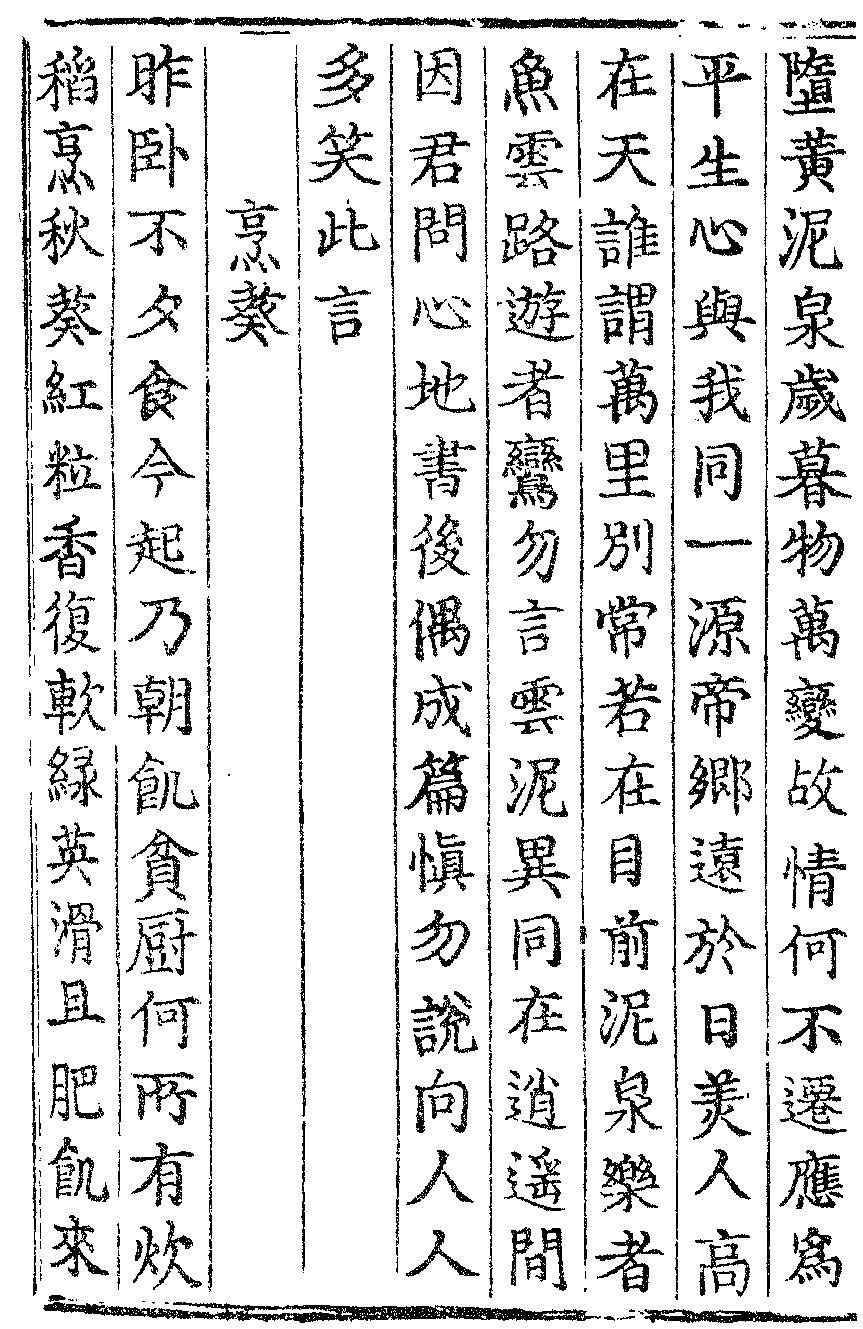 墮黃泥泉歲暮物萬變故情何不遷應爲
平生心與我同一源帝鄉遠於日美人高
在天誰謂萬里別常若在目前泥泉樂者
魚雲路遊者鸞勿言雲泥異同在逍遥間
因君問心地書後偶成篇慎勿說向人人
多笑此言
烹葵
昨卧不夕食今起乃朝飢貧厨何所有炊
稻烹秋葵紅粒香復軟緑英滑且肥飢來